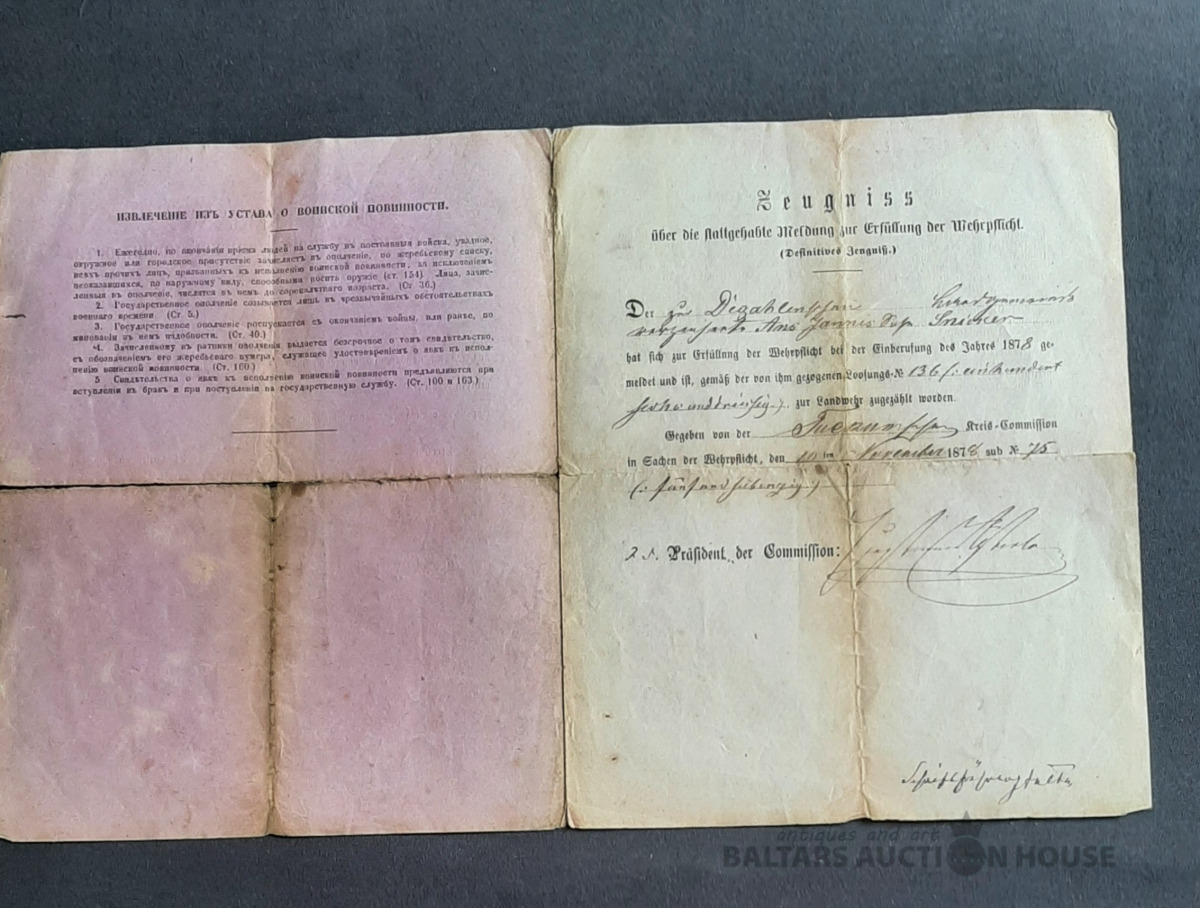 ИЗВЛЕЧЕНІЕ ИЗЪ УСТАВА О ВОИНСКОЙ ПОВИННОСТИ.
1. Ежегодно, по окончаніи пріема людей на службу въ постоянныя войска, уѣздное,
окружное или городское присутствіе зачисляетъ въ ополченіе, по жеребьевому списку,
всѣхъ прочихъ лицъ, призванныхъ къ исполненію воинской повинности, за исключеніемъ
неоказавшихся, по наружному виду, способными носить оружіе (ст. 154). Лица, зачис-
ленныя въ ополченіе, числятся въ немъ до сорокалѣтняго возраста. (Ст 36.)
2. Государственное ополченіе созывается лишь въ чрезвычайныхъ обстоятельствахъ
военнаго времени. (Ст 5.)
3. Государственное ополченіе роспускается съ окончаніемъ войны, или ранѣе, по
минованіи въ немъ надобности. (Ст. 40.)
4. Зачисленному въ ратники ополченія выдается безсрочное о томъ свидѣтельство,
съ обозначеніемъ его жеребьеваго нумера, служащее удостовѣреніемъ о явкѣ къ испол-
ненію воинской повинности. (Ст. 160.)
5 Свидѣтельства о явкѣ къ исполненію воинской повинности предъявляются при
вступленіи въ бракъ и при поступленіи на государственную службу. (Ст. 100 и 163.)
Zeugniss
über die stattgehabte Meldung zur Erfüllung der Wehrpflicht.
(Definitives Zeugniß.)
Der zu Degahlenschen
verzeichnete Ans Jannis Sohn Snicker
hat sich zur Erfüllung der Wehrpflicht bei der Einberufung des Jahres 1878 ge-
meldet und ist, gemäß der von ihm gezogenen Loosungs-№ 136 (: einhundert
sechs und dreißig :) zur Landwehr zugezählt worden.
Gegeben von der Tuckumschen Kreis-Commission
in Sachen der Wehrpflicht, den 10ten November 1878 sub № 75
(: fünf und siebenzig :)
Präsident der Commission:
Schriftführer
antiques and art
BALTARS AUCTION HOUSE